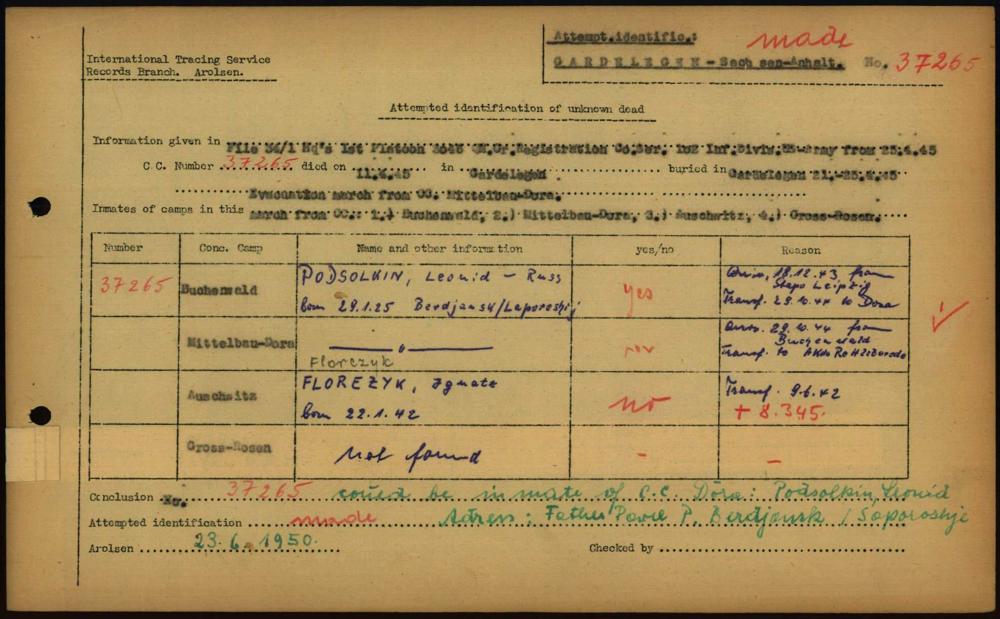 Attempt.identific.: made
International Tracing Service
Records Branch. Arolsen.
GARDELEGEN - Sachsen-Anhalt. No. 37265
Attempted identification of unknown dead
Information given in File 34/1 Hq's 1st Platoon Registration Co. 102 Inf.Divis.US-Army from 25.4.45
C.C. Number 37265 died on 11.4.45 in Gardelegen. buried in Gardelegen 21.-25.4.45
Evacuation march from CC. Mittelbau-Dora.
Inmates of camps in this march from CC.: 1.) Buchenwald, 2.) Mittelbau-Dora, 3.) Auschwitz, 4.) Gross-Rosen.
Number Conc. Camp Name and other information yes/no Reason
37265 Buchenwald PODSOLKIN, Leonid - Russ yes 18.12.43 from
Stapo Leipzig
born 29.1.25 Berdjansk/Saporoshij Transf. 29.10.44 to Dora
Mittelbau-Dora — " — 29.10.44 from
Buchenwald
Transf. to
Florczyk
Auschwitz FLOREZYK, Ignatz no Transf. 9.6.42
born 22.1.42 + 8.345.
Gross-Rosen not found - -
Conclusion No. 37265 could be inmate of C.C. Dora: Podsolkin, Leonid
Attempted identification made Adress: Father Pavel P. Berdjansk / Saporoshje
Arolsen 23.6.1950. Checked by